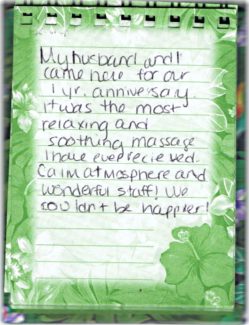 My husband and I
came here for our
1 yr. anniversary.
It was the most
relaxing and
soothing massage
I have ever recieved.
Calm atmosphere and
wonderful staff! We
couldn't be happier!